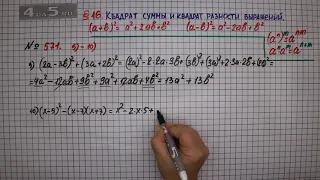 § 16. КВАДРАТ СУММЫ И КВАДРАТ РАЗНОСТИ ВЫРАЖЕНИЙ.
(a+b)² = a²+2ab+b² (a-b)² = a²-2ab+b²
№ 571. 9) - 10)
(aⁿ)ᵐ = aⁿᵐ
aⁿaᵐ = aⁿ⁺ᵐ
9) (2a-3b)² + (3a+2b)² = (2a)² - 2·2a·3b + (3b)² + (3a)² + 2·3a·2b + (2b)² =
= 4a² - 12ab + 9b² + 9a² + 12ab + 4b² = 13a² + 13b²
10) (x-5)² - (x-7)(x+7) = x² - 2·x·5 +